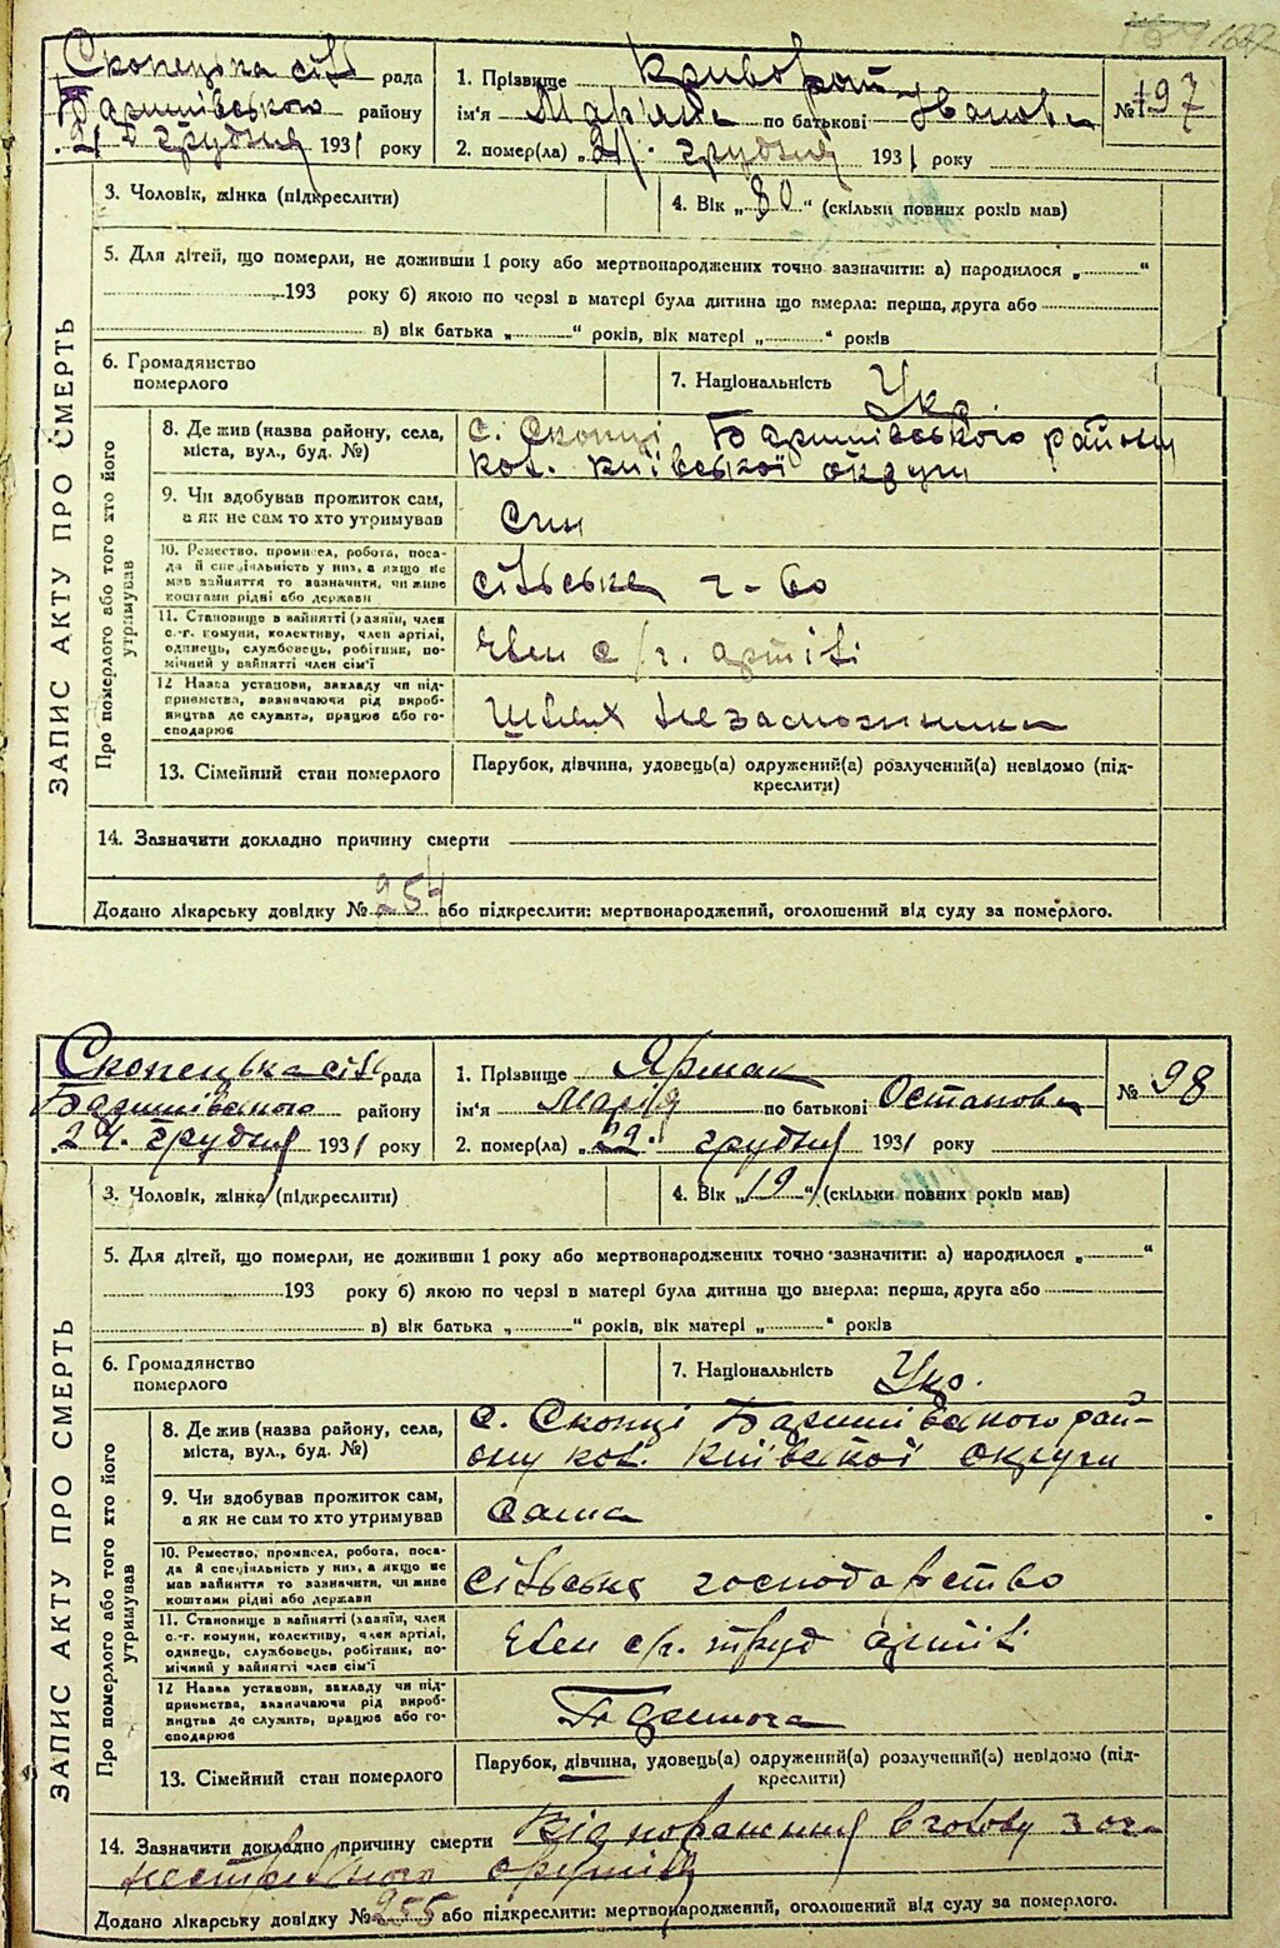 Скопецька сіль рада
Баришівського району
21 грудня 1931 року
1. Прізвище Криворот
ім'я Мар'яна по батькові Іванова
2. помер(ла) „21. грудня 1931 року
№ 197
3. Чоловік, жінка (підкреслити)
4. Вік „80“ (скільки повних років мав)
5. Для дітей, що померли, не доживши 1 року або мертвонароджених точно зазначити: а) народилося „ “
193 року б) якою по черзі в матері була дитина що вмерла: перша, друга або
в) вік батька „ “ років, вік матері „ “ років
6. Громадянство
померлого
7. Національність Укр.
ЗАПИС АКТУ ПРО СМЕРТЬ
Про померлого або того хто його
утримував
8. Де жив (назва району, села,
міста, вул., буд. №)
с. Скопці Баришівського району
кол. київської округи
9. Чи здобував прожиток сам,
а як не сам то хто утримував
Син
10. Ремество, промисел, робота, поса-
да й спеціяльність у них, а якщо не
мав зайняття то зазначити, чи живе
коштами рідні або держави
сільське г-во
11. Становище в зайнятті (хазяїн, член
с.-г. комуни, колективу, член артілі,
одинець, службовець, робітник, по-
мічний у зайнятті член сім'ї
член с/г. артілі
12 Назва установи, закладу чи під-
приємства, зазначаючи рід вироб-
ництва де служить, працює або го-
сподарює
Шлях незаможника
13. Сімейний стан померлого
Парубок, дівчина, удовець(а) одружений(а) розлучений(а) невідомо (під-
креслити)
14. Зазначити докладно причину смерти
Додано лікарську довідку № 254 або підкреслити: мертвонароджений, оголошений від суду за померлого.
Скопецька сіль рада
Баришівського району
24. грудня 1931 року
1. Прізвище Ярмак
ім'я Марія по батькові Остапова
2. помер(ла) „22. грудня 1931 року
№ 98
3. Чоловік, жінка (підкреслити)
4. Вік „19“ (скільки повних років мав)
5. Для дітей, що померли, не доживши 1 року або мертвонароджених точно зазначити: а) народилося „ “
193 року б) якою по черзі в матері була дитина що вмерла: перша, друга або
в) вік батька „ “ років, вік матері „ “ років
6. Громадянство
померлого
7. Національність Укр.
ЗАПИС АКТУ ПРО СМЕРТЬ
Про померлого або того хто його
утримував
8. Де жив (назва району, села,
міста, вул., буд. №)
с. Скопці Баришівського рай-
ону кол. київської округи
9. Чи здобував прожиток сам,
а як не сам то хто утримував
сама
10. Ремество, промисел, робота, поса-
да й спеціяльність у них, а якщо не
мав зайняття то зазначити, чи живе
коштами рідні або держави
сільське господарство
11. Становище в зайнятті (хазяїн, член
с.-г. комуни, колективу, член артілі,
одинець, службовець, робітник, по-
мічний у зайнятті член сім'ї
член с/г. труд артілі
12 Назва установи, закладу чи під-
приємства, зазначаючи рід вироб-
ництва де служить, працює або го-
сподарює
13. Сімейний стан померлого
Парубок, дівчина, удовець(а) одружений(а) розлучений(а) невідомо (під-
креслити)
14. Зазначити докладно причину смерти Від пораження в голову з ог-
нестрельного оружія
Додано лікарську довідку № 255 або підкреслити: мертвонароджений, оголошений від суду за померлого.